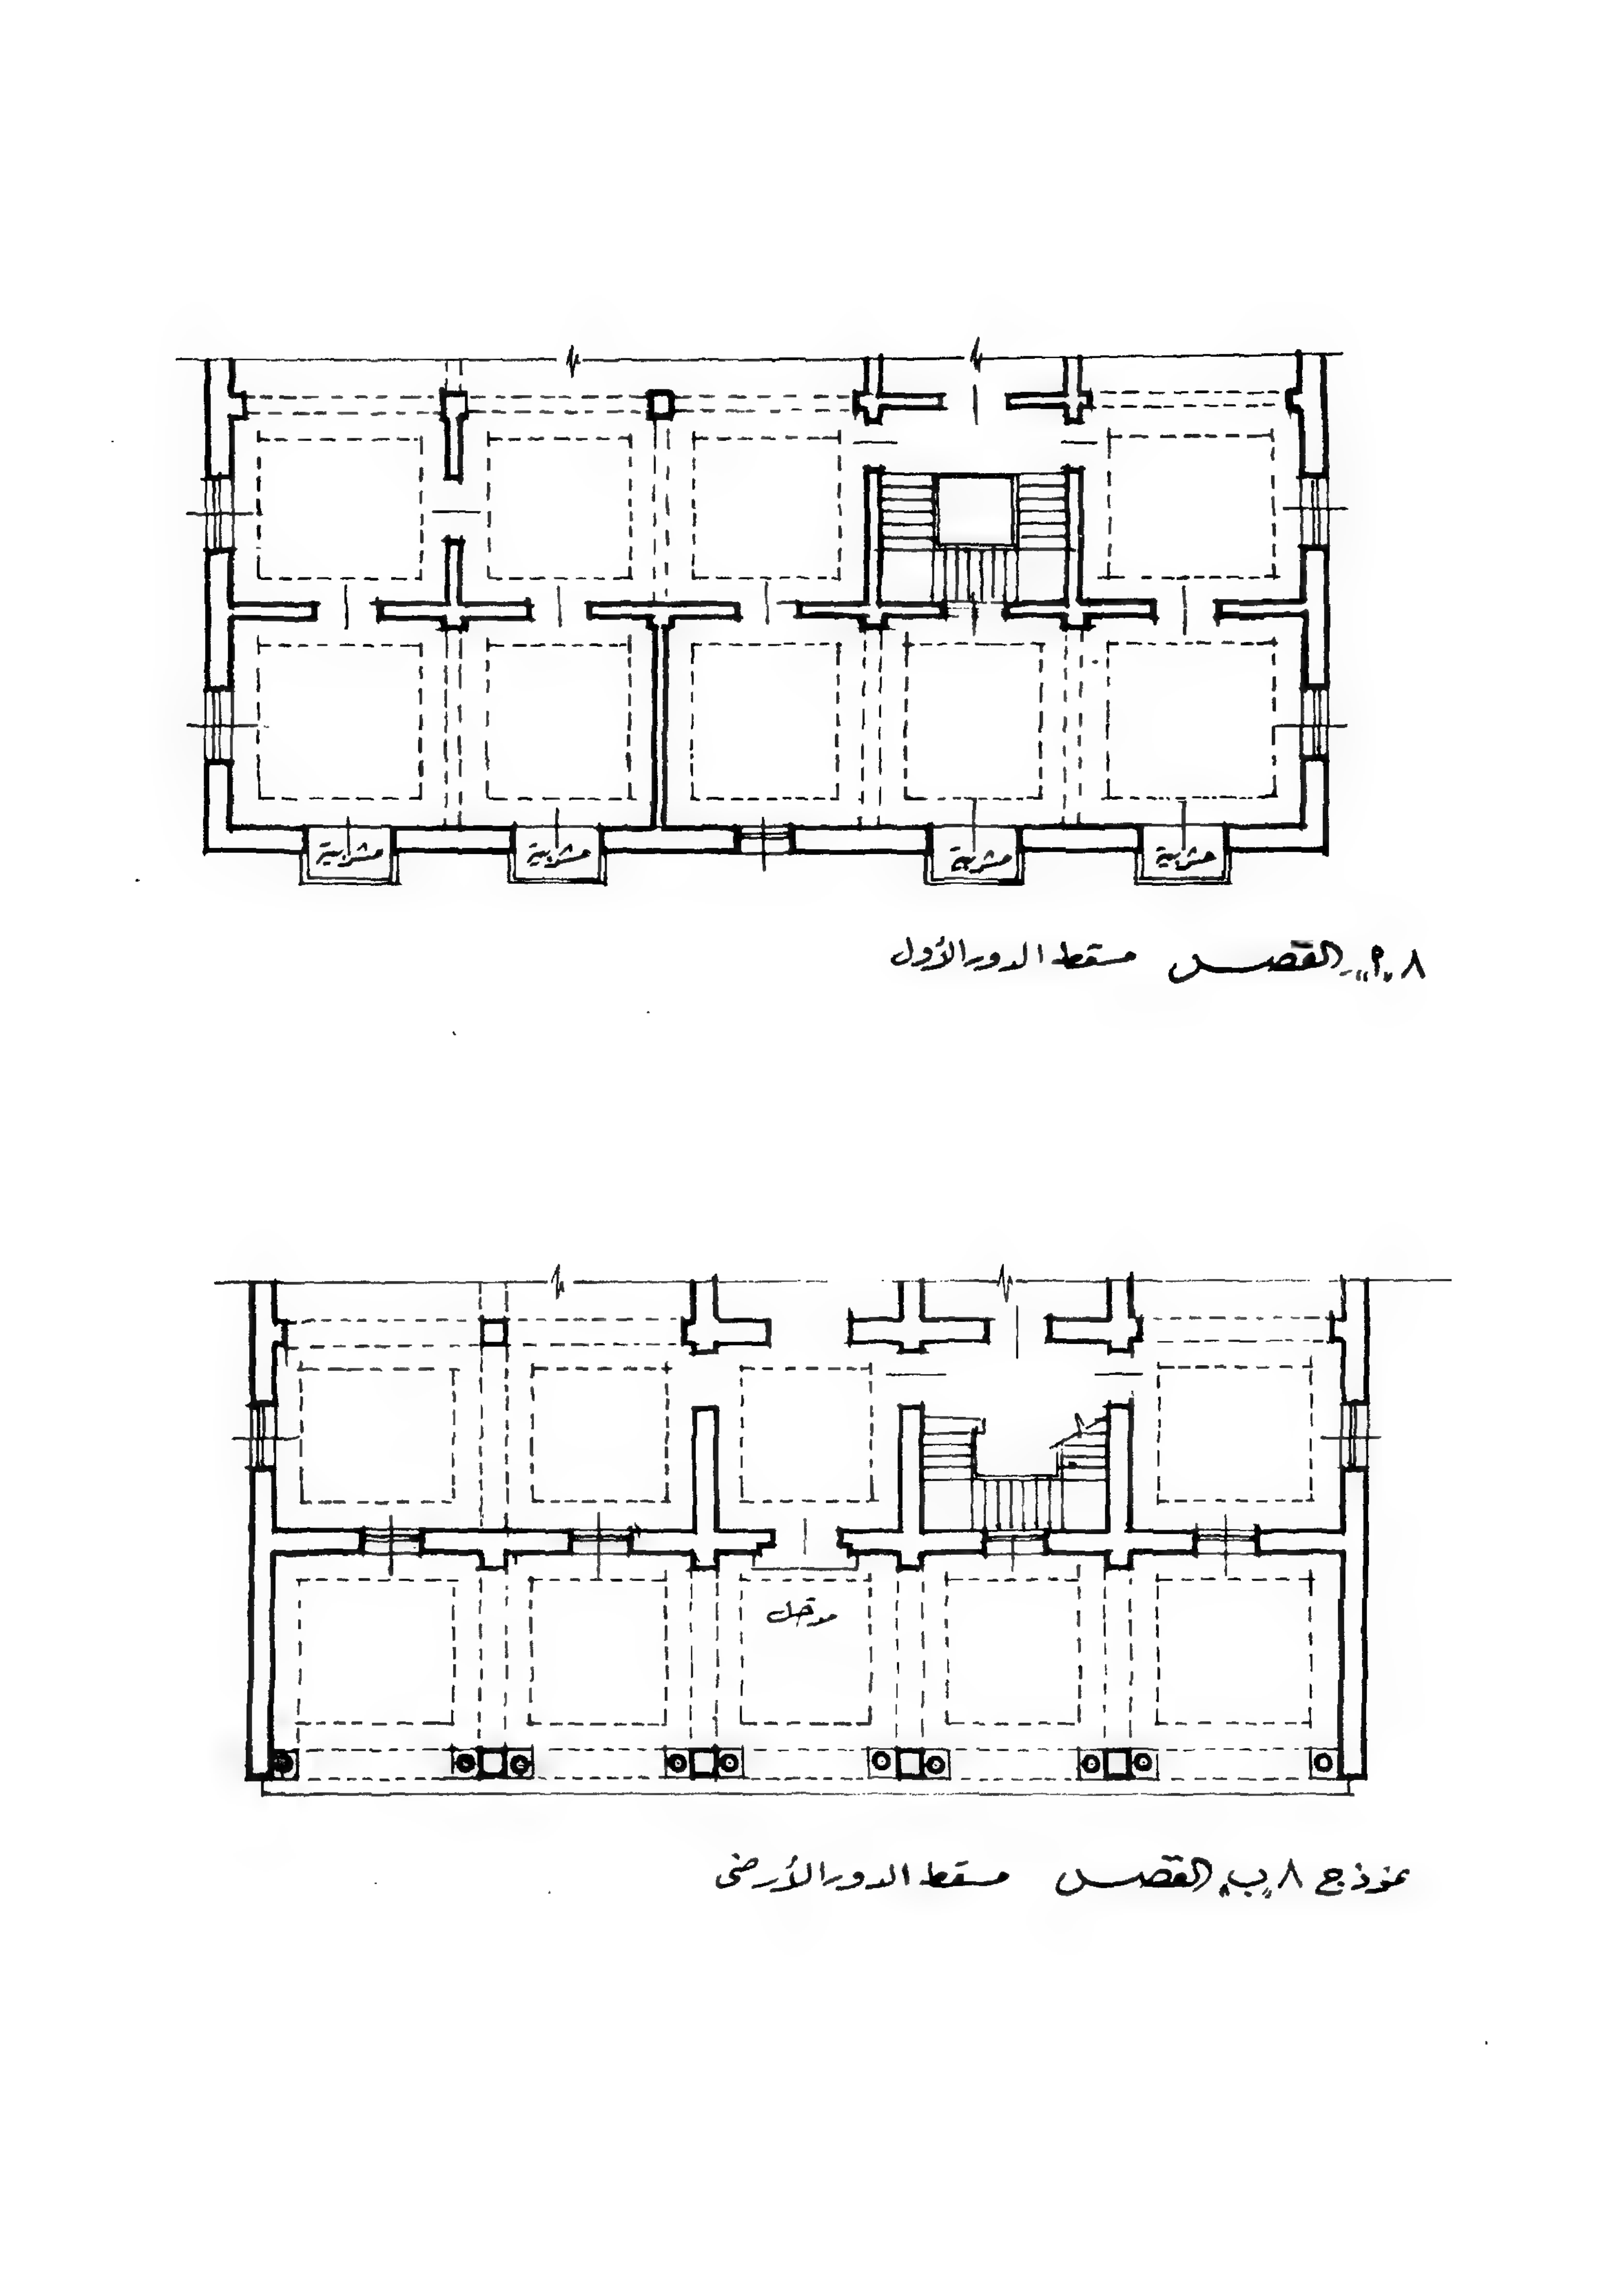 مشربية
مشربية
مشربية
مشربية
٨ "أ" القصر مسقط الدور الأول
مدخل
نموذج ٨ "ب" القصر مسقط الدور الأرضى